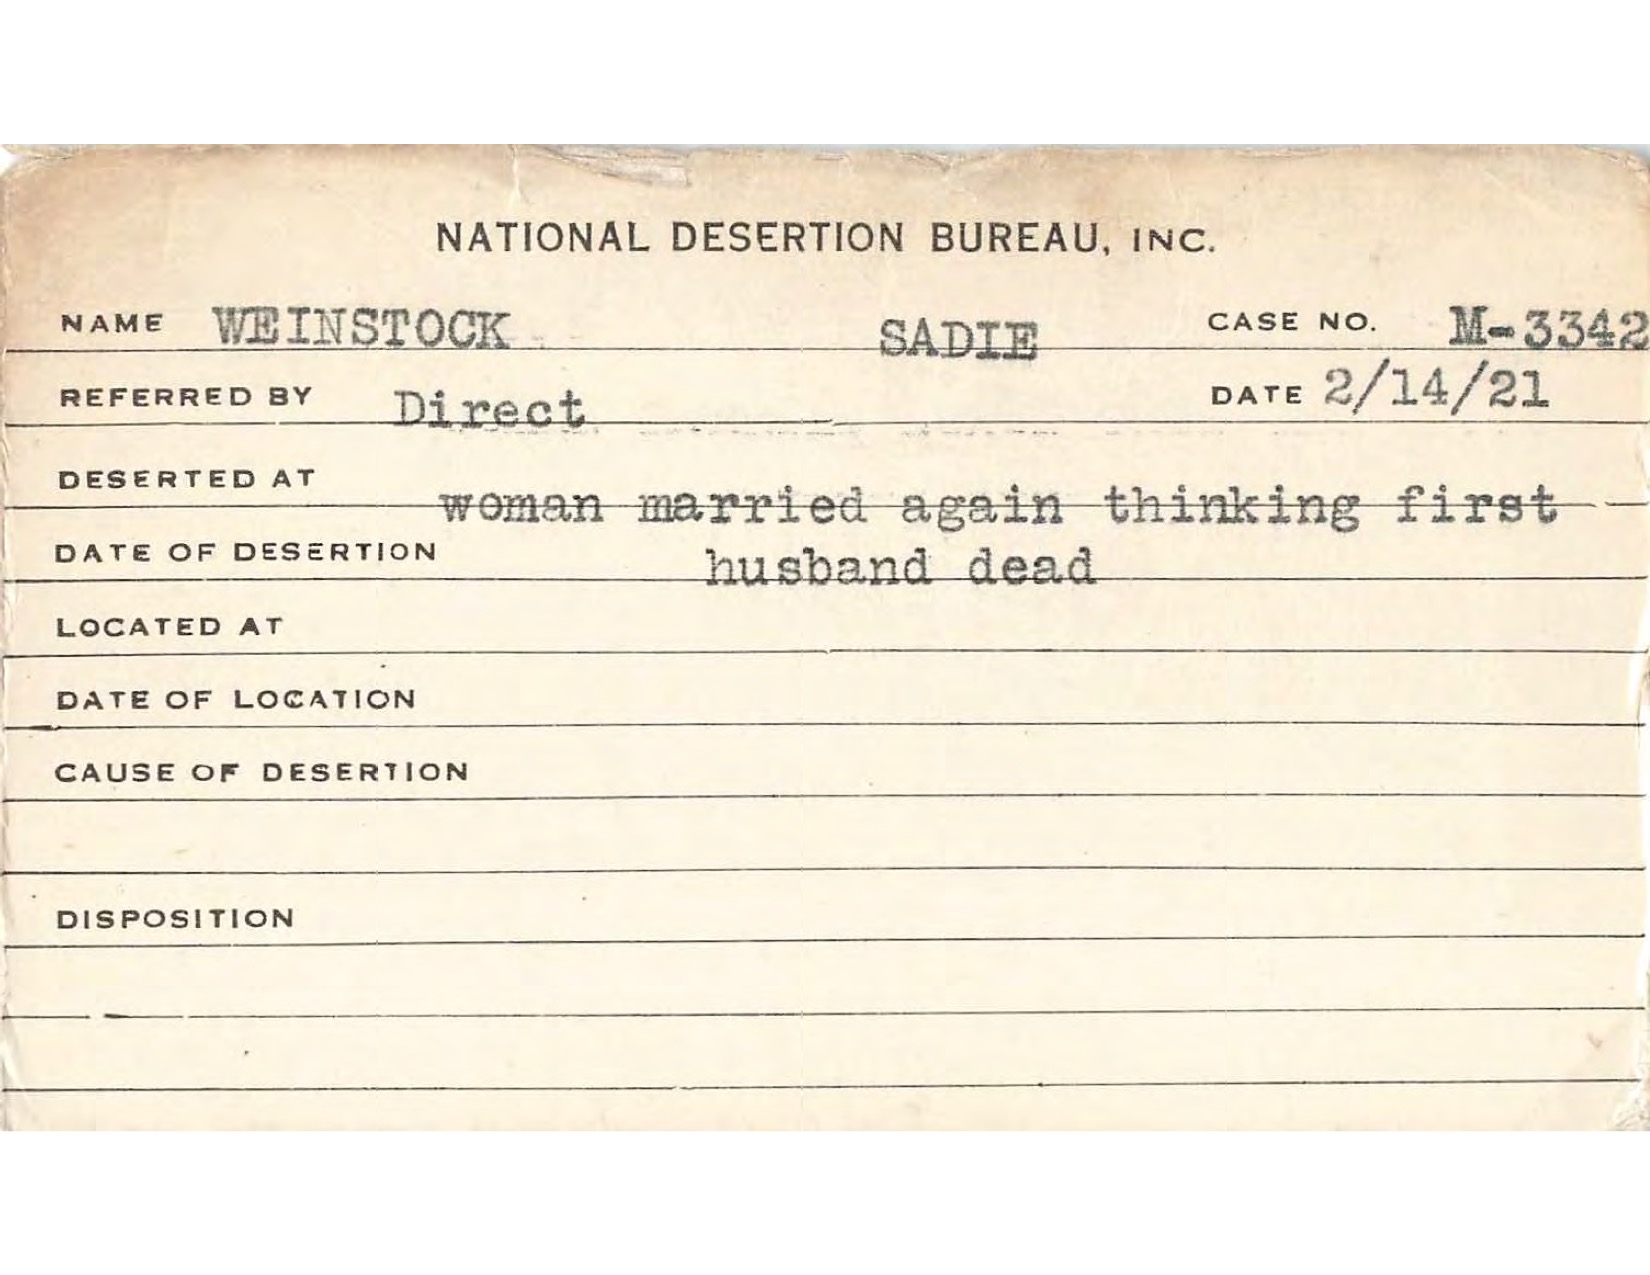 NATIONAL DESERTION BUREAU, INC.
NAME WEINSTOCK SADIE CASE NO. M-3342
REFERRED BY Direct DATE 2/14/21
DESERTED AT woman married again thinking first
DATE OF DESERTION husband dead
LOCATED AT
DATE OF LOCATION
CAUSE OF DESERTION
DISPOSITION